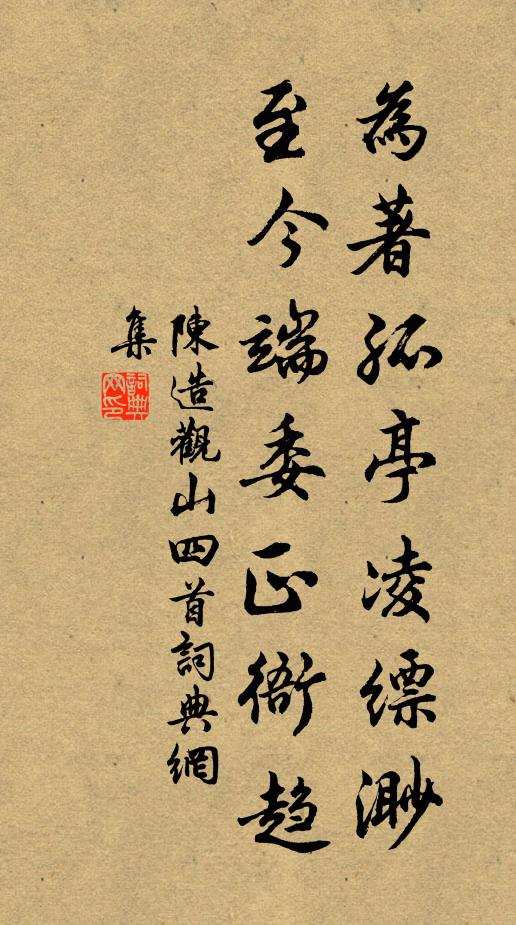 為著孤亭凌縹渺
至今端委正衙趨
陳造觀山四首詞典網
集
詞典
网印